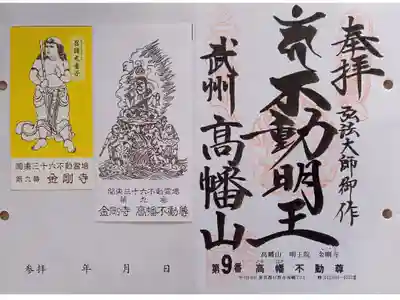 奉拝
弘法大師御作
不動明王
武州
高幡山
高幡山 明王院 金剛寺
第9番 高幡不動尊
関東三十六不動霊場
第九番
金剛寺 高幡不動尊
関東三十六不動霊場
第九番 金剛寺
参拝 年 月 日